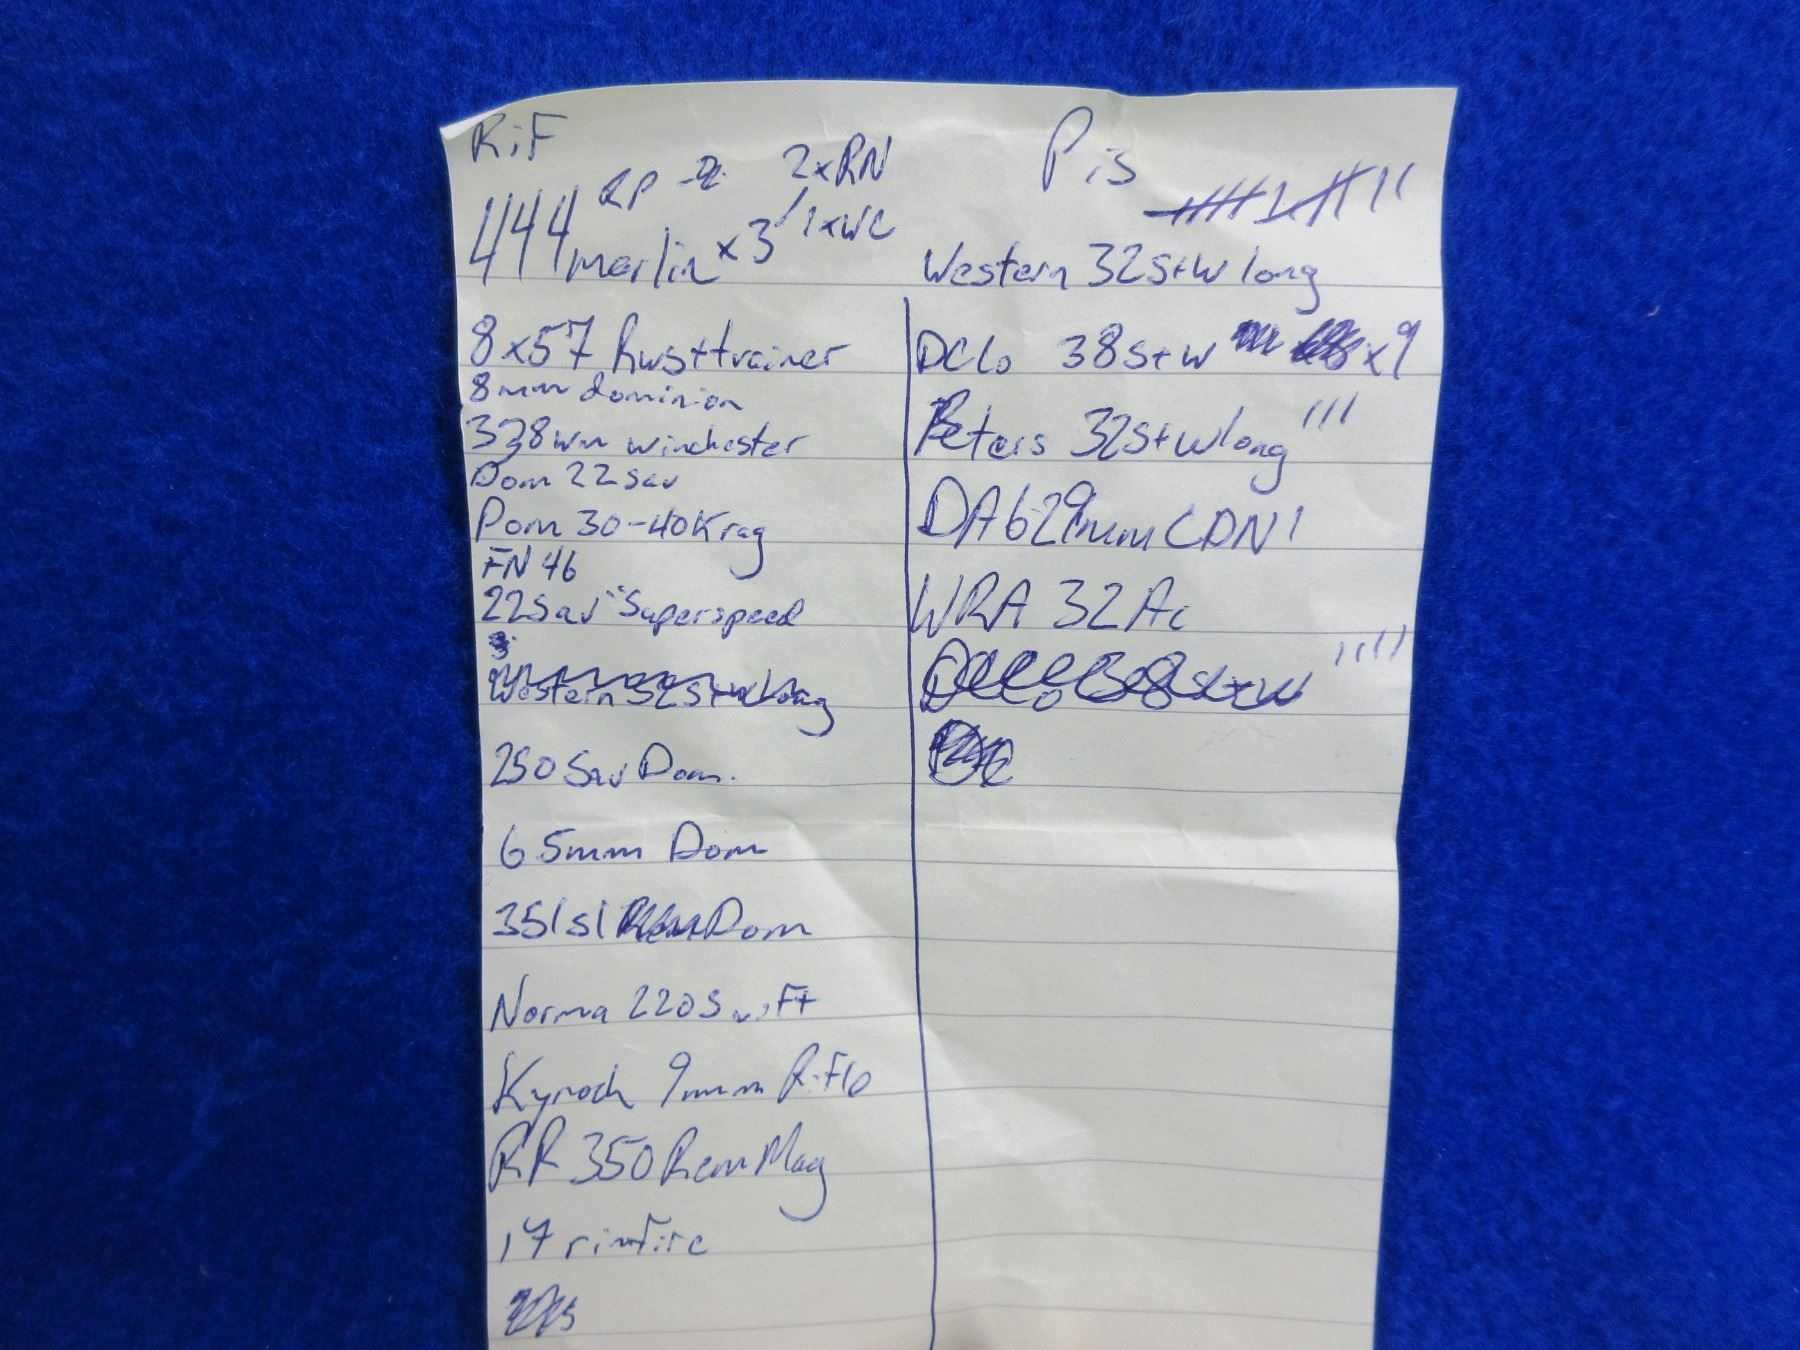 RiF
RP 2xRN
444 marlin x3 1xWC
8x57 Rws ttrainer
8mm dominion
338 wm winchester
Dom 22 sav
Dom 30-40 Krag
FN 46
22 Sav "Superspeed
Western 32 S+W Long
250 Sav Dom.
6 5mm Dom
351 sl Dom
Norma 220 Swift
Kynoch 9mm Rifle
RR 350 Rem Mag
17 rimfire
Pis
Western 32 S+W long
DCCo 38 S+W x9
Peters 32 S+W long
DA 62 9mm CDN
WRA 32 Ac
DCCo 38 S+W